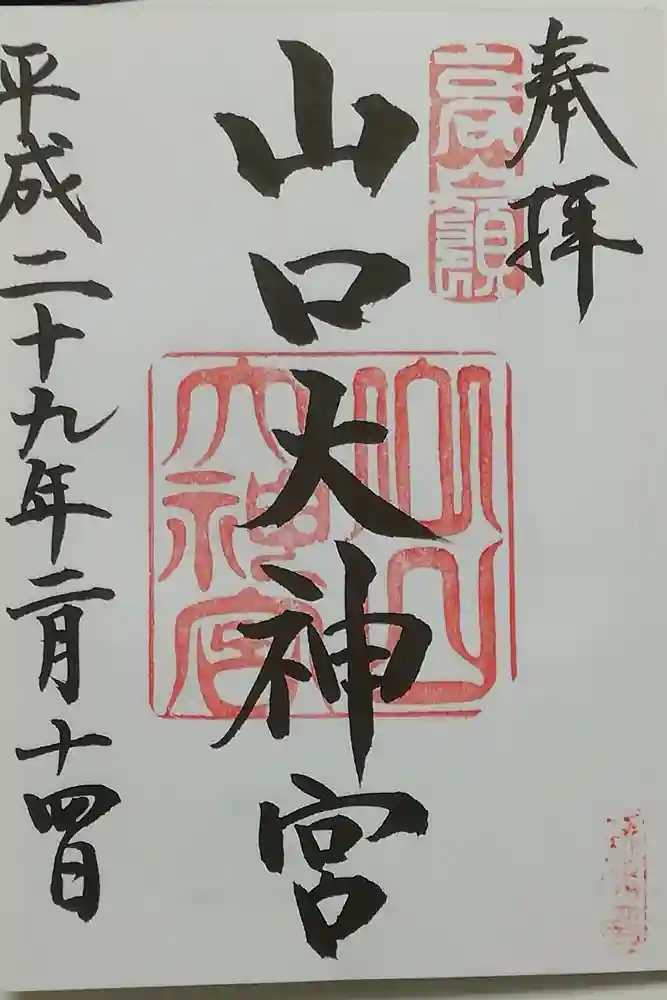 奉拝
高嶺
山口大神宮
山口
大神宮
平成二十九年二月十四日